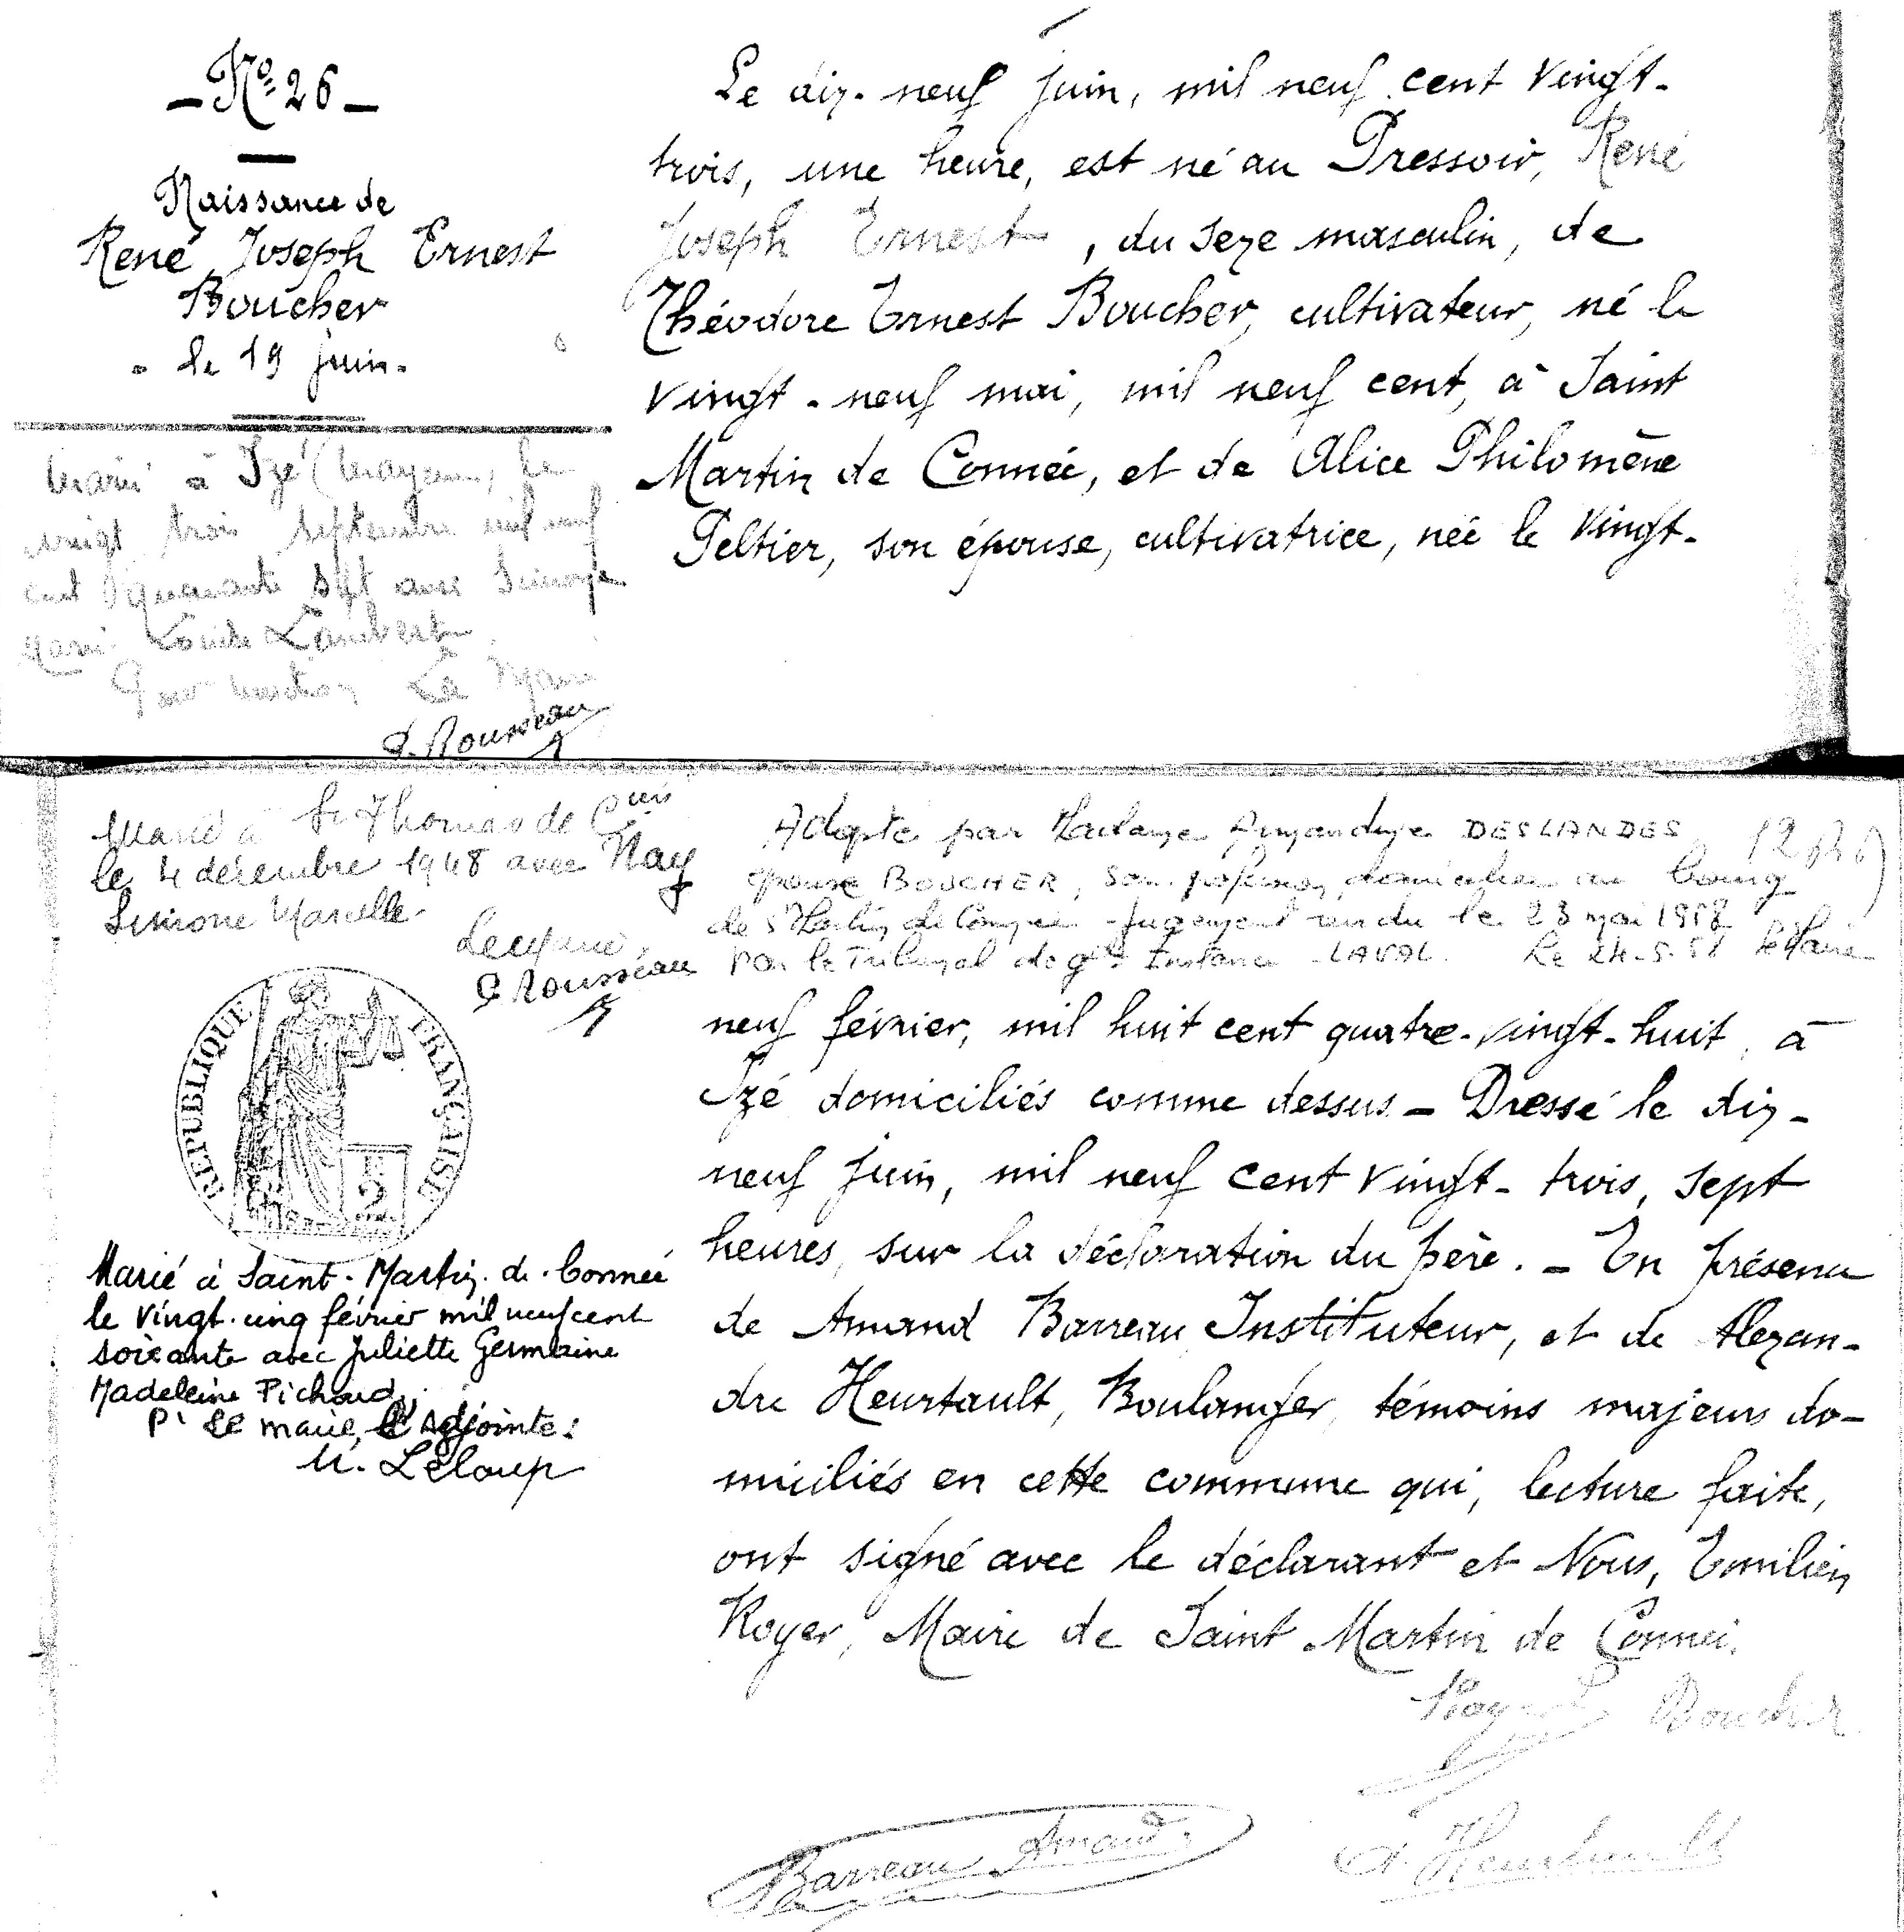 - N° 26 -
Naissance de
René Joseph Ernest
Boucher
le 19 juin.
Marié à Izé (Mayenne) le
vingt trois septembre mil neuf
cent quarante sept avec Simone
Louise Lambert
Pour mention Le Maire
Rousseau
Le dix-neuf juin, mil neuf cent vingt-
trois, une heure, est né au Pressoir, René
Joseph Ernest, du sexe masculin, de
Théodore Ernest Boucher, cultivateur, né le
vingt-neuf mai, mil neuf cent, à Saint
Martin de Connée, et de Alice Philomène
Peltier, son épouse, cultivatrice, née le vingt-
Marié à St Thomas de
le 4 décembre 1948 avec Nay
Simone Marcelle.
Le Maire,
Rousseau
Adopté par DESLANDES
épouse BOUCHER, sans profession, domiciliée au bourg
de St Martin de Connée - Jugement rendu le 23 mai 1958
par le Tribunal de gde Instance - LAVAL. Le 24-5-58 Le Maire
REPUBLIQUE FRANÇAISE
2
Marié à Saint-Martin-de-Connée
le vingt-cinq février mil neuf cent
soixante avec Juliette Germaine
Madeleine Pichard.
Pr le maire, l'adjointe:
M. Leloup
neuf février, mil huit cent quatre-vingt-huit, à
Izé domiciliés comme dessus - Dressé le dix-
neuf juin, mil neuf cent vingt-trois, sept
heures, sur la déclaration du père. - En présence
de Amand Barreau Instituteur, et de Alexan-
dre Heurtault, Boulanger, témoins majeurs do-
miciliés en cette commune qui, lecture faite,
ont signé avec le déclarant et Nous, Emilien
Royer, Maire de Saint Martin de Connée.
Royer Boucher
Barreau Amand
A. Heurtault